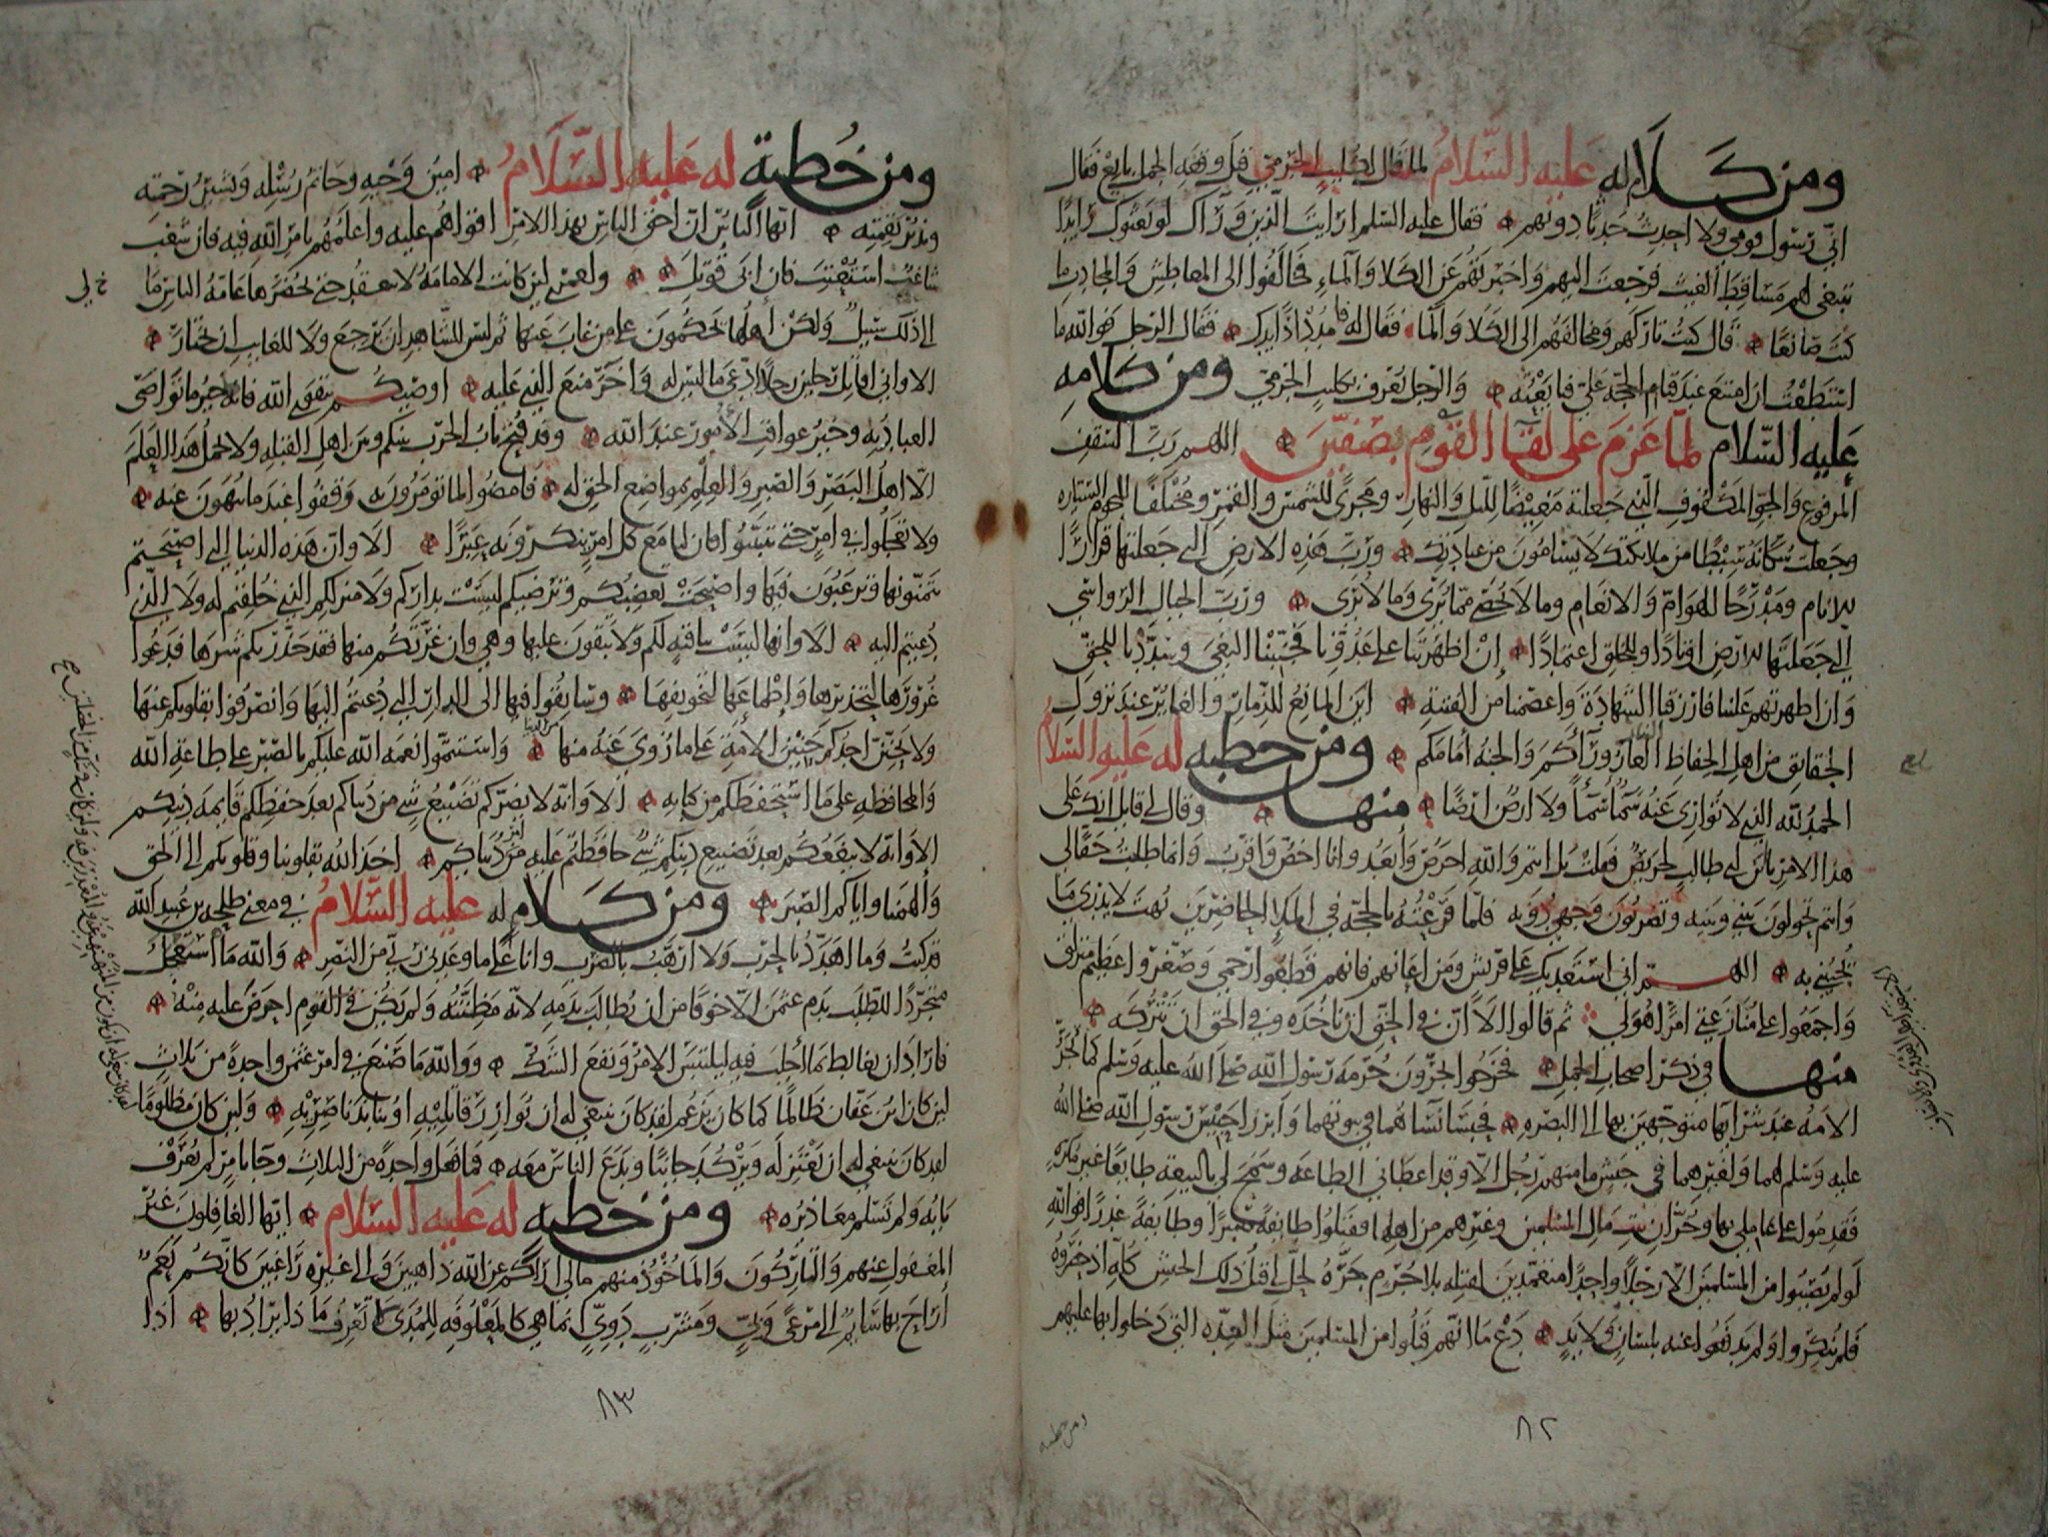 ومن كلام له عليه السلام لما قال لكليب الجرمي قبل وقعة الجمل بايع فقال
اني رسول قومي ولا احدث حدثا دونهم فقال عليه السلم ارايت الذين ورآك لو بعثوك رايدا
تبتغي لهم مساقط الغيث فرجعت اليهم واخبرتهم عن الكلا والماء فخالفوا الى المعاطش والمجادب ما
كنت صانعا قال كنت تاركهم ومخالفهم الى الكلا والما فقال له فامدد اذا يدك فقال الرجل فوالله ما
استطعت ان امتنع عند قيام الحجة علي فبايعته والرجل يعرف بكليب الجرمي ومن كلامه
عليه السلام لما عزم على لقآ القوم بصفين اللهم رب السقف
المرفوع والجو المكفوف الذي جعلته مغيضا لليل والنهار ومجرى للشمس والقمر ومختلفا للنجوم السيارة
وجعلت سكانه سبطا من ملائكتك لا يسامون من عبادتك ورب هذه الارض التي جعلتها قرارا
للانام ومدرجا للهوام والانعام وما لا يحصى مما يرى وما لا يرى ورب الجبال الرواسي
التي جعلتها للارض اوتادا وللخلق اعتمادا إن اظهرتنا على عدونا فجنبنا البغي وسددنا للحق
وان اظهرتهم علينا فارزقنا الشهادة واعصمنا من الفتنة اين المانع للذمار والغاير عند نزول
الحقايق من اهل الحفاظ العار ورآكم والجنة امامكم ومن خطبه له عليه السلام
الحمد لله الذي لا توارى عنه سمآ سمآ ولا ارض ارضا منها وقال لي قايل انك على
هذا الامر يابن ابي طالب لحريص فقلت بل انتم والله احرص وأبعد وانا اخص واقرب وانما طلبت حقا لي
وانتم تحولون بيني وبينه وتضربون وجهي دونه فلما قرعته بالحجة في الملإ الحاضرين بهت لا يدري ما
يجيبني به اللهم اني استعديك على قريش ومن اعانهم فانهم قطعوا رحمي وصغروا عظيم منزلتي
واجمعوا على منازعتي امرا هو لي ثم قالوا الا ان في الحق ان تاخذه وفي الحق ان تتركه
منها في ذكر اصحاب الجمل فخرجوا يجرون حرمة رسول الله صلى الله عليه وسلم كما تجر
الامة عند شرائها متوجهين بها الى البصره فحبسا نسآهما في بيوتهما وابرزا حبيس رسول الله صلى الله
عليه وسلم لهما ولغيرهما في جيش ما منهم رجل الا وقد اعطاني الطاعه وسمح لي بالبيعة طايعا غير مكره
فقدموا على عاملي بها وخزان بيت مال المسلمين وغيرهم من اهلها فقتلوا طايفة صبرا وطايفة غدرا فوالله
لو لم يصيبوا من المسلمين الا رجلا واحدا متعمدين لقتله بلا جرم جره لحل لي قتل ذلك الجيش كله اذ حضروه
فلم ينكروا ولم يدفعوا عنه بلسان ولا يد دع ما انهم قتلوا من المسلمين مثل العده التي دخلوا بها عليهم
٨٢
ومن خطبه
ومن خطبة له عليه السلام امين وحيه وخاتم رسله وبشير رحمته
ونذير نقمته ايها الناس ان احق الناس بهذا الامر اقواهم عليه واعلمهم بامر الله فيه فان شغب
شاغب استعتب فان ابى قوتل ولعمري لين كانت الامامة لا تنعقد حتى تحضرها عامة الناس ما
الى ذلك سبيل ولكن اهلها يحكمون على من غاب عنها ثم ليس للشاهد ان يرجع ولا للغايب ان يختار
الا واني اقاتل رجلين رجلا ادعى ما ليس له وآخر منع الذي عليه اوصيكم بتقوى الله فانه خير ما تواصى
العباد به وخير عواقب الامور عند الله وقد فتح باب الحرب بينكم وبين اهل القبله ولا يحمل هذا العلم
الا اهل البصر والصبر والعلم بمواضع الحق له فامضوا لما تومرون به وقفوا عند ما تنهون عنه
ولا تعجلوا في امر حتى تتبينوا فان لنا مع كل امر تنكرونه غيرا الا وان هذه الدنيا التي اصبحتم
تتمنونها وترغبون فيها واصبحت تغضبكم وترضيكم ليست بداركم ولا منزلكم الذي خلقتم له ولا الذي
دعيتم اليه الا وانها ليست بباقية لكم ولا تبقون عليها وهي وان غرتكم منها فقد حذرتكم شرها فدعوا
غرورها لتحذيرها واطماعها لتخويفها وسابقوا فيها الى الدار التي دعيتم اليها وانصرفوا بقلوبكم عنها
ولا يخنن احدكم خنين الامة على ما زوي عنه منها واستتموا نعمة الله عليكم بالصبر على طاعة الله
والمحافظه على ما استحفظكم من كتابه الا وانه لا يضركم تضييع شي من دنياكم بعد حفظكم قايمة دينكم
الا وانه لا ينفعكم بعد تضييع دينكم شي حافظتم عليه من امر دنياكم اخذ الله بقلوبنا وقلوبكم الى الحق
والهمنا واياكم الصبر ومن كلام له عليه السلام في معنى طلحة بن عبيد الله
قد كنت وما اهدد بالحرب ولا ارهب بالضرب وانا على ما وعدني ربي من النصر والله ما استعجل
متجردا للطلب بدم عثمن الا خوفا من ان يطالب بدمه لانه مظنته ولم يكن في القوم احرص عليه منه
فاراد ان يغالط بما أجلب فيه ليلتبس الامر ويقع الشك ووالله ما صنع في امر عثمن واحدة من ثلاث
لين كان ابن عفان ظالما كما كان يزعم لقد كان ينبغي له ان يوازر قاتليه او ينابذ ناصريه ولين كان مظلوما
لقد كان ينبغي له ان يعتزله ويركد جانبا ويدع الناس معه فما فعل واحدة من الثلاث وجا بامر لم يعرف
بابه ولم تسلم معاذيره ومن خطبه له عليه السلام ايها الغافلون غير
المغفول عنهم والتاركون والماخوذ منهم مالي اراكم عن الله ذاهبين والى غيره راغبين كانكم نعم
اراح بها سايم الى مرعى وبي ومشرب دوي انما هي كالمعلوفه للمدى لا تعرف ماذا يراد بها اذا
٨٣